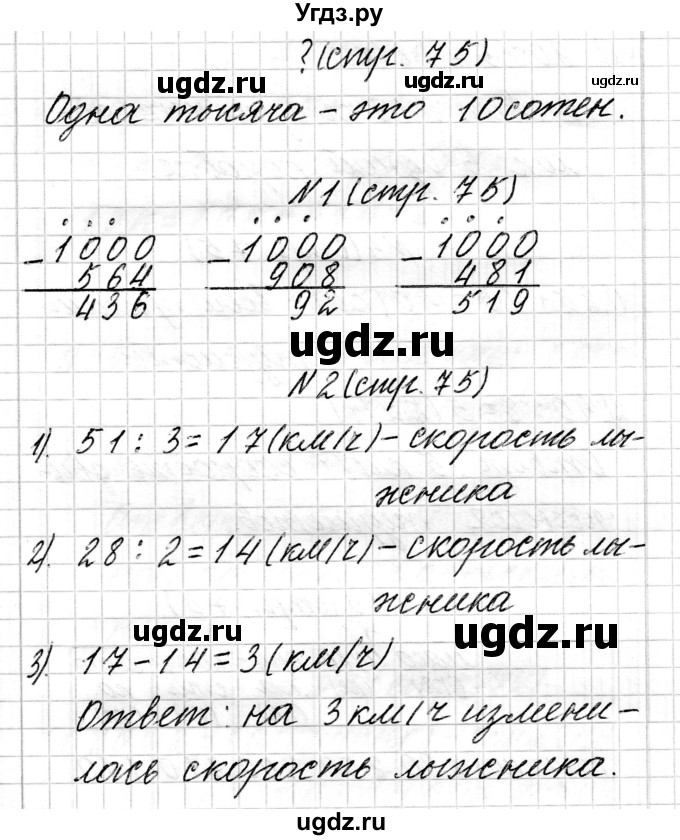 Угдз.ру
?(стр. 75)
ugdz.ru ugdz.ru ugdz.ru
Одна тысяча – это 10 сотен.
N1 (стр. 75)
– 1000 – 1000 – 1000
564 908 481
436 92 519
ugdz.ru
N2 (стр. 75)
1). 51 : 3 = 17 (км/ч) – скорость лы-
жника
2). 28 : 2 = 14 (км/ч) – скорость лы-
жника
ugdz.ru ugdz.ru
3). 17 – 14 = 3 (км/ч)
Ответ: на 3 км/ч измени-
лась скорость лыжника.
ugdz.ru ugdz.ru